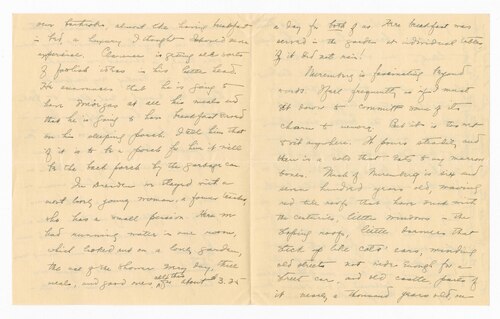 our bathrobes, almost like having breakfast
in bed, a luxury I thought beyond more
expensive. Clarence is getting all sorts
of foolish ideas in his little head.
He announces that he is going to
have at all his meals and
that he is going to have breakfast served
on his sleeping porch. I tell him that
if it is to be a porch for him it will
be the back porch by the garbage can.
In Dresden we stayed with a
most lovely young woman, a former teacher,
who has a small pension. Here we
had running water in our room,
which looked out on a lovely garden,
the use of the shower every day, three
meals, and good ones, all this for about $3.25
a day for both of us. Here breakfast was
served in the garden at individual tables
if it did not rain.
Nuremburg is fascinating beyond
words. Quite frequently is if I must
sit down to commit some of its
charm to memory. But it is too wet
to sit anywhere. It pours steadily, and
there is a cold that eats to my marrow
bones. Much of Nuremburg is six and
seven hundred years old, wavering
red tile roofs that have sunk with
the centuries, little windows in the
sloping roofs, little dormers that
stick up like cats' ears, winding
old streets not wide enough for a
street car, and old castle parts of
it nearly a thousand years old, on